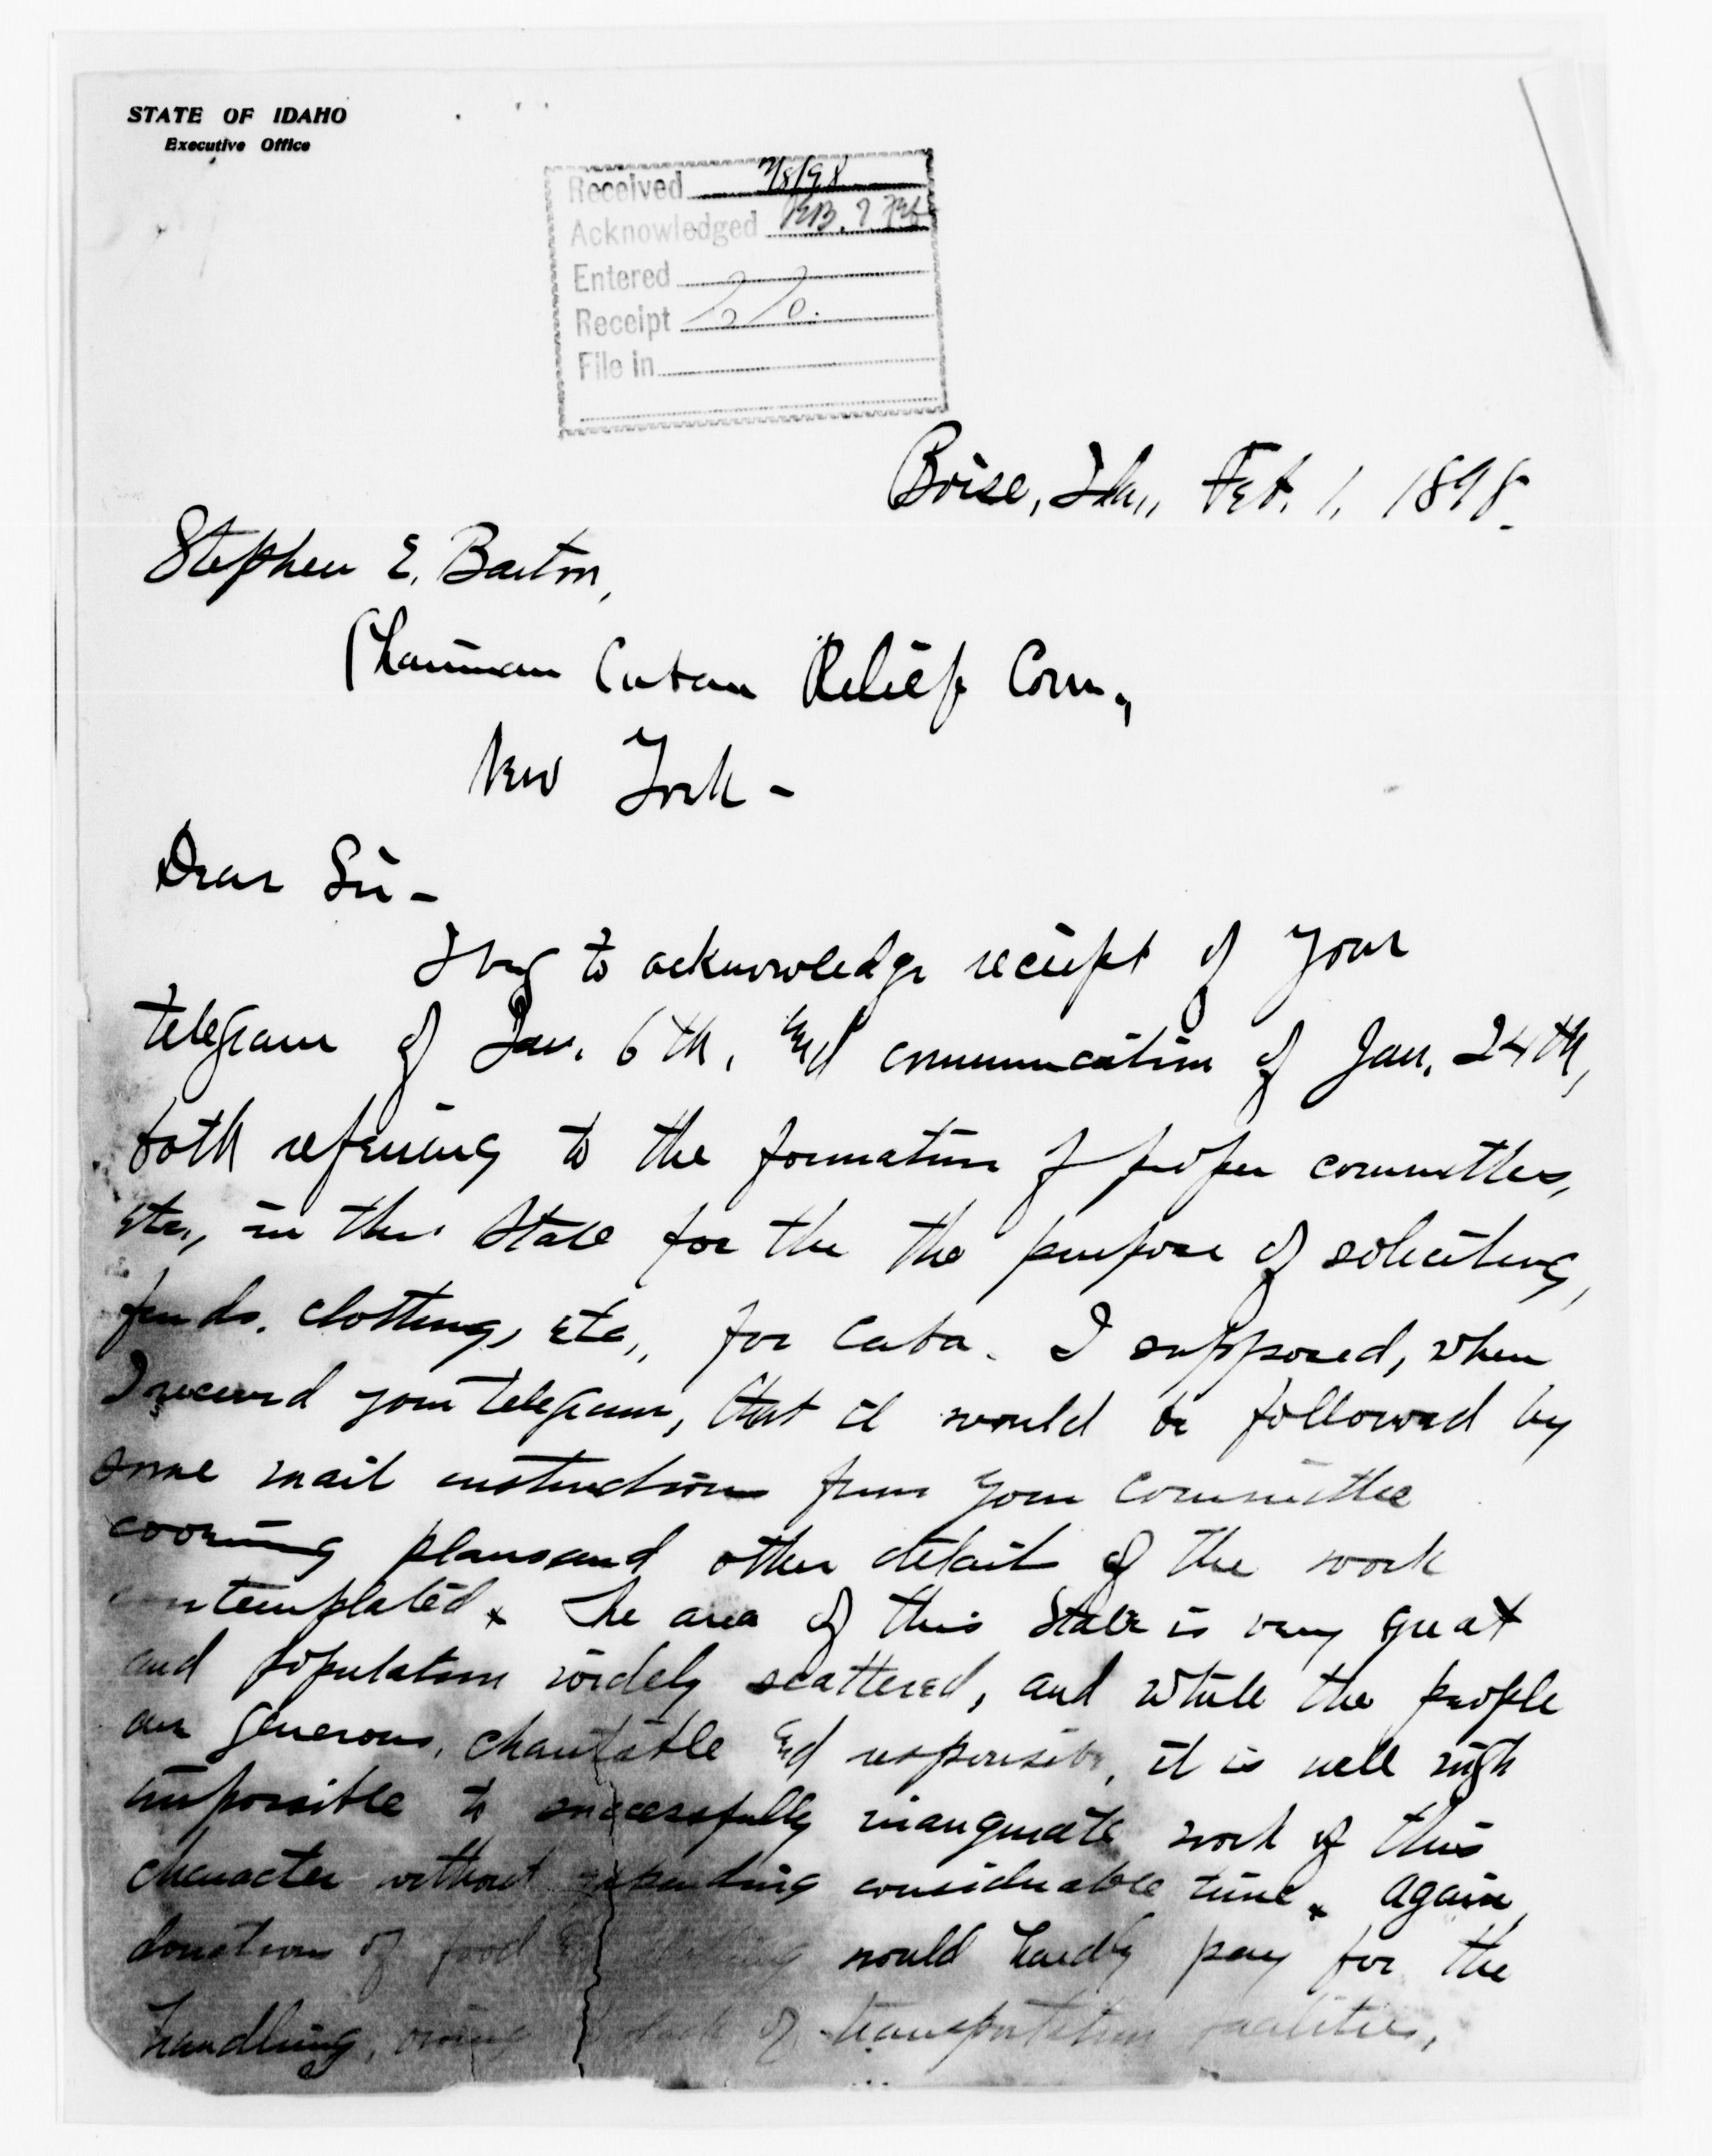 STATE OF IDAHO
Executive Office
Received 2/8/98
Acknowledged
Entered
Receipt
File in
Boise, Ida., Feb. 1, 1898.
Stephen E. Barton,
Chairman Cuban Relief Com.,
New York -
Dear Sir -
I beg to acknowledge receipt of your
telegram of Jan. 6th, and communication of Jan. 24th,
both referring to the formation of proper committees,
etc., in this State for the the purpose of soliciting,
funds, clothing, etc., for Cuba. I supposed, when
I received your telegram, that it would be followed by
some mail instructions from your committee
plans and other details of the work
contemplated. The area of this State is very great
and population widely scattered, and while the people
are generous, charitable and responsive, it is well nigh
impossible to successfully inaugurate work of this
character without expending considerable time. Again,
donations of food clothing would hardly pay for the
handling, owing to lack of transportation facilities,